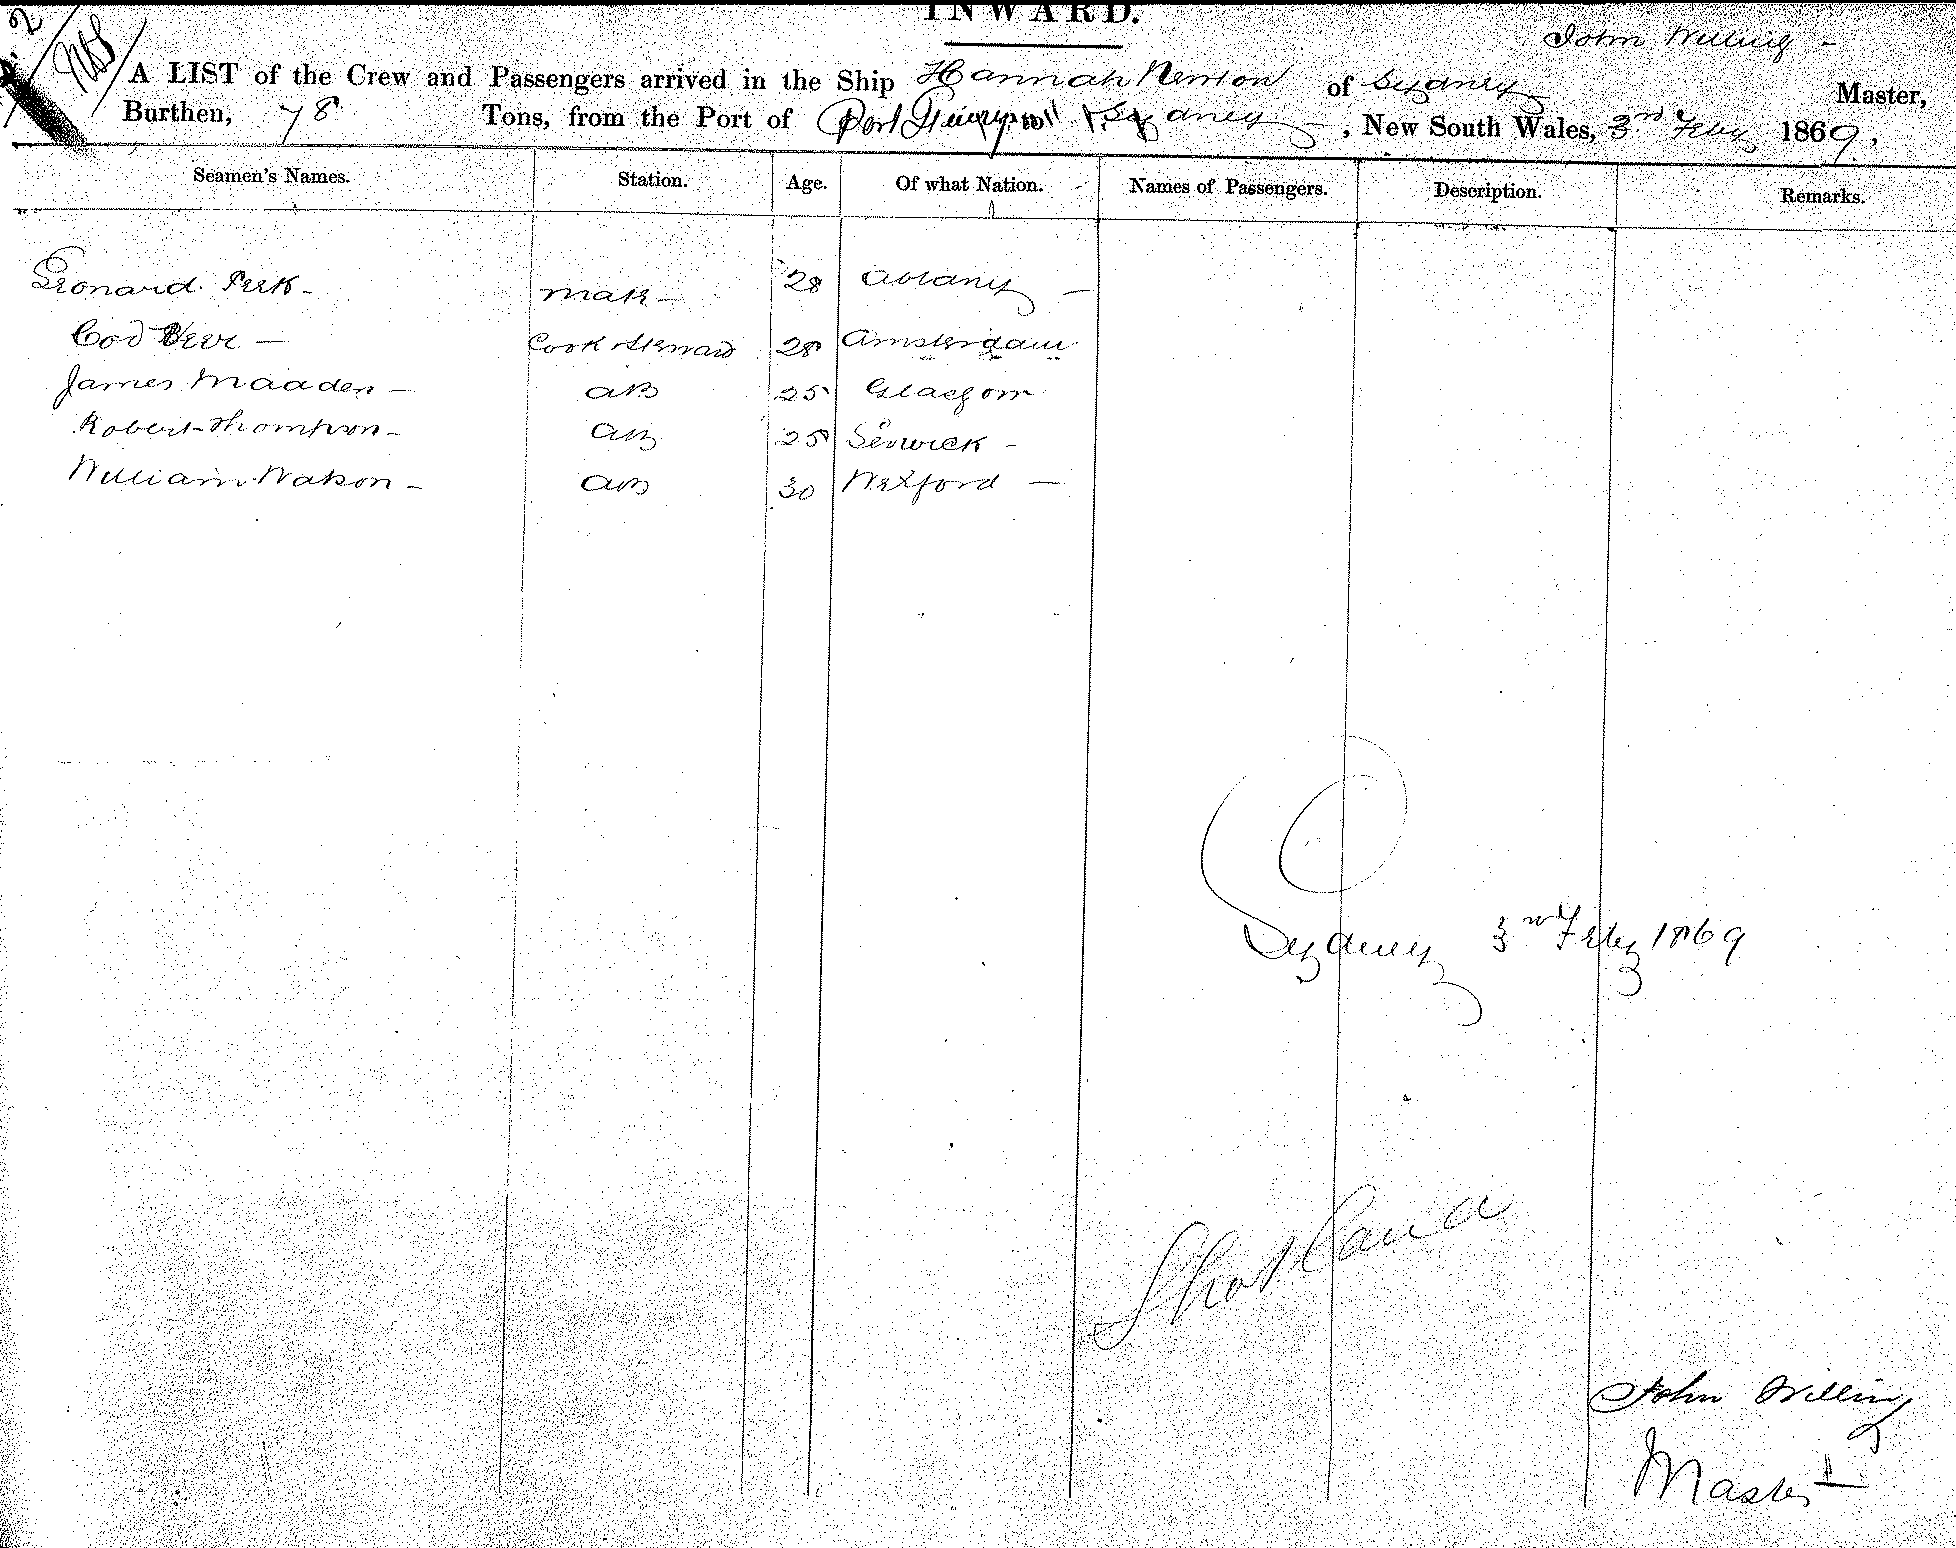 INWARD.
John Willing -
A LIST of the Crew and Passengers arrived in the Ship Hannah Newton of Sydney Master,
Burthen, 78 Tons, from the Port of Port to Sydney, New South Wales, 3rd Feby 1869.
Seamen's Names. Station. Age. Of what Nation. Names of Passengers. Description. Remarks.
Leonard Peek - Mate - 28 -
Cook Steward 28 Amsterdam
James Madden - AB 25 Glasgow
Robert Thompson - AB 25 Lerwick -
William Watson - AB 30 Wexford -
Sydney 3rd Feby 1869
John Willing
Master